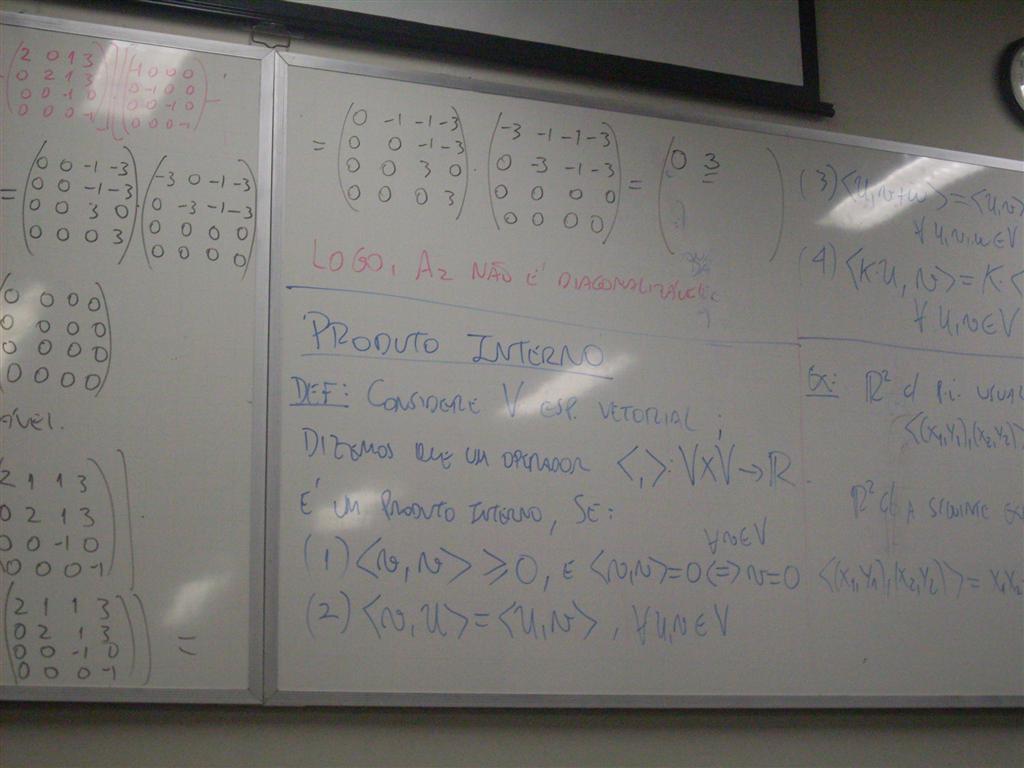 2 0 1 3
0 2 1 3
0 0 -1 0
0 0 0 -1
-1 0 0 0
0 -1 0 0
0 0 -1 0
0 0 0 -1
=
0 0 -1 -3
0 0 -1 -3
0 0 3 0
0 0 0 3
.
-3 0 -1 -3
0 -3 -1 -3
0 0 0 0
0 0 0 0
0 0 0 0
0 0 0 0
0 0 0 0
0 0 0 0
2 1 1 3
0 2 1 3
0 0 -1 0
0 0 0 -1
2 1 1 3
0 2 1 3
0 0 -1 0
0 0 0 -1
=
=
0 -1 -1 -3
0 0 -1 -3
0 0 3 0
0 0 0 3
.
-3 -1 -1 -3
0 -3 -1 -3
0 0 0 0
0 0 0 0
=
0 3
LOGO, A2 NÃO É DIAGONALIZÁVEL
PRODUTO INTERNO
DEF: CONSIDERE V ESP. VETORIAL;
DIZEMOS QUE UM OPERADOR <,>: V×V→ℝ
É UM PRODUTO INTERNO, SE:
∀v∈V
(1) <v,v> ≥ 0, E <v,v>=0 ⇔ v=0
(2) <v,u> = <u,v>, ∀u,v∈V
(3) <u,v+w> = <u,v>
∀u,v,w∈V
(4) <K·u,v> = K·<
∀u,v∈V
EX: ℝ² c/ P.I. USUAL
<(x1,y1),(x2,y2)>
ℝ² c/ A SEGUINTE
<(x1,y1),(x2,y2)> = x1x2